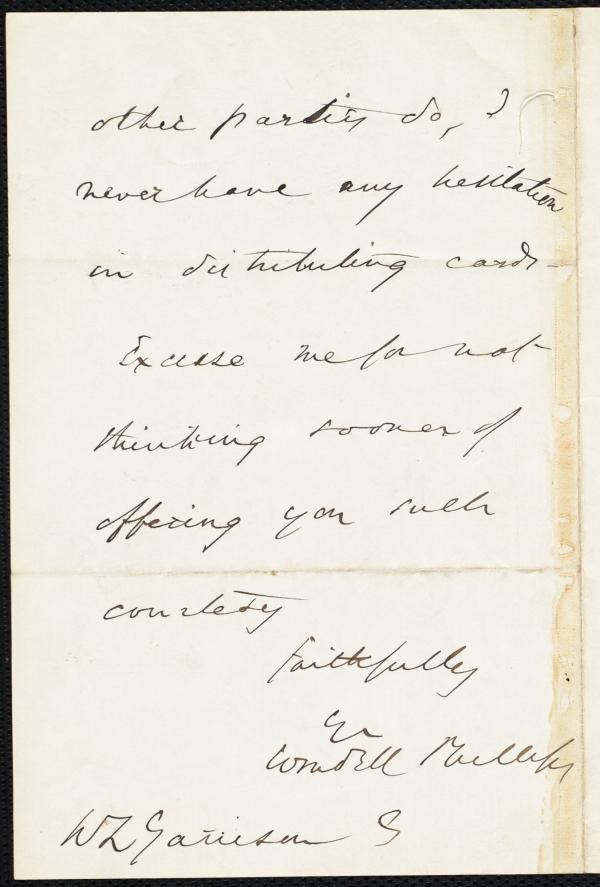 other parties do, I
never have any hesitation
in distributing cards -
Excuse me for not
thinking sooner of
offering you such
courtesy
Faithfully
Yr
Wendell Phillips
W L Garrison